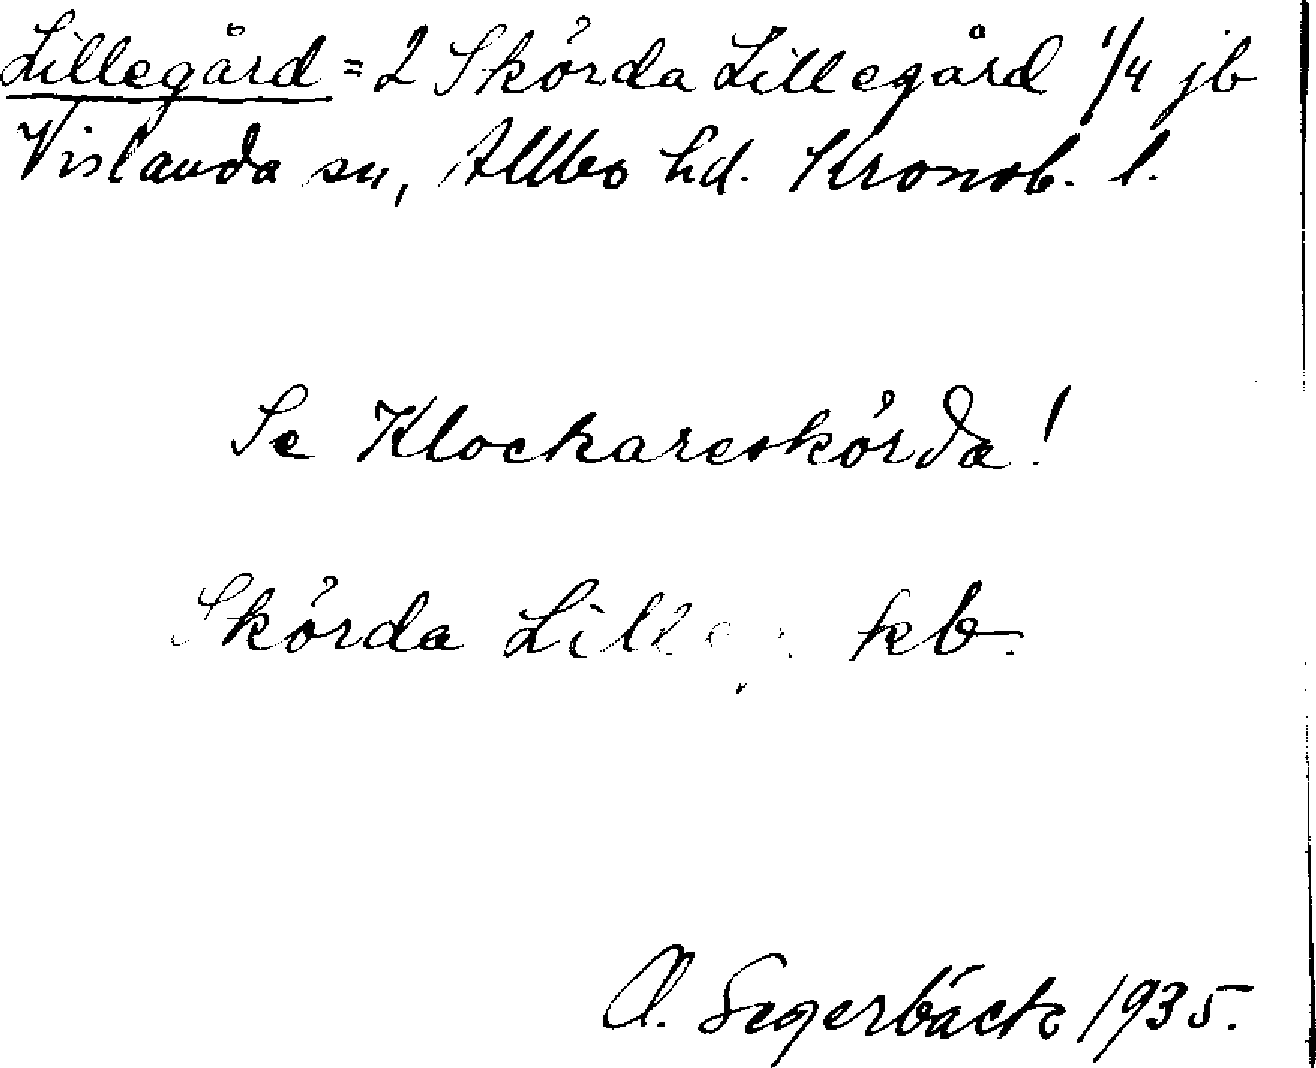 Lillegård = 2 Skörda Lillegård 1/4 jb
Vislanda sn, Allbo hd. Kronob. l.
Se Klockareskörda!
Skörda kb.
A. Segerbäck 1935.